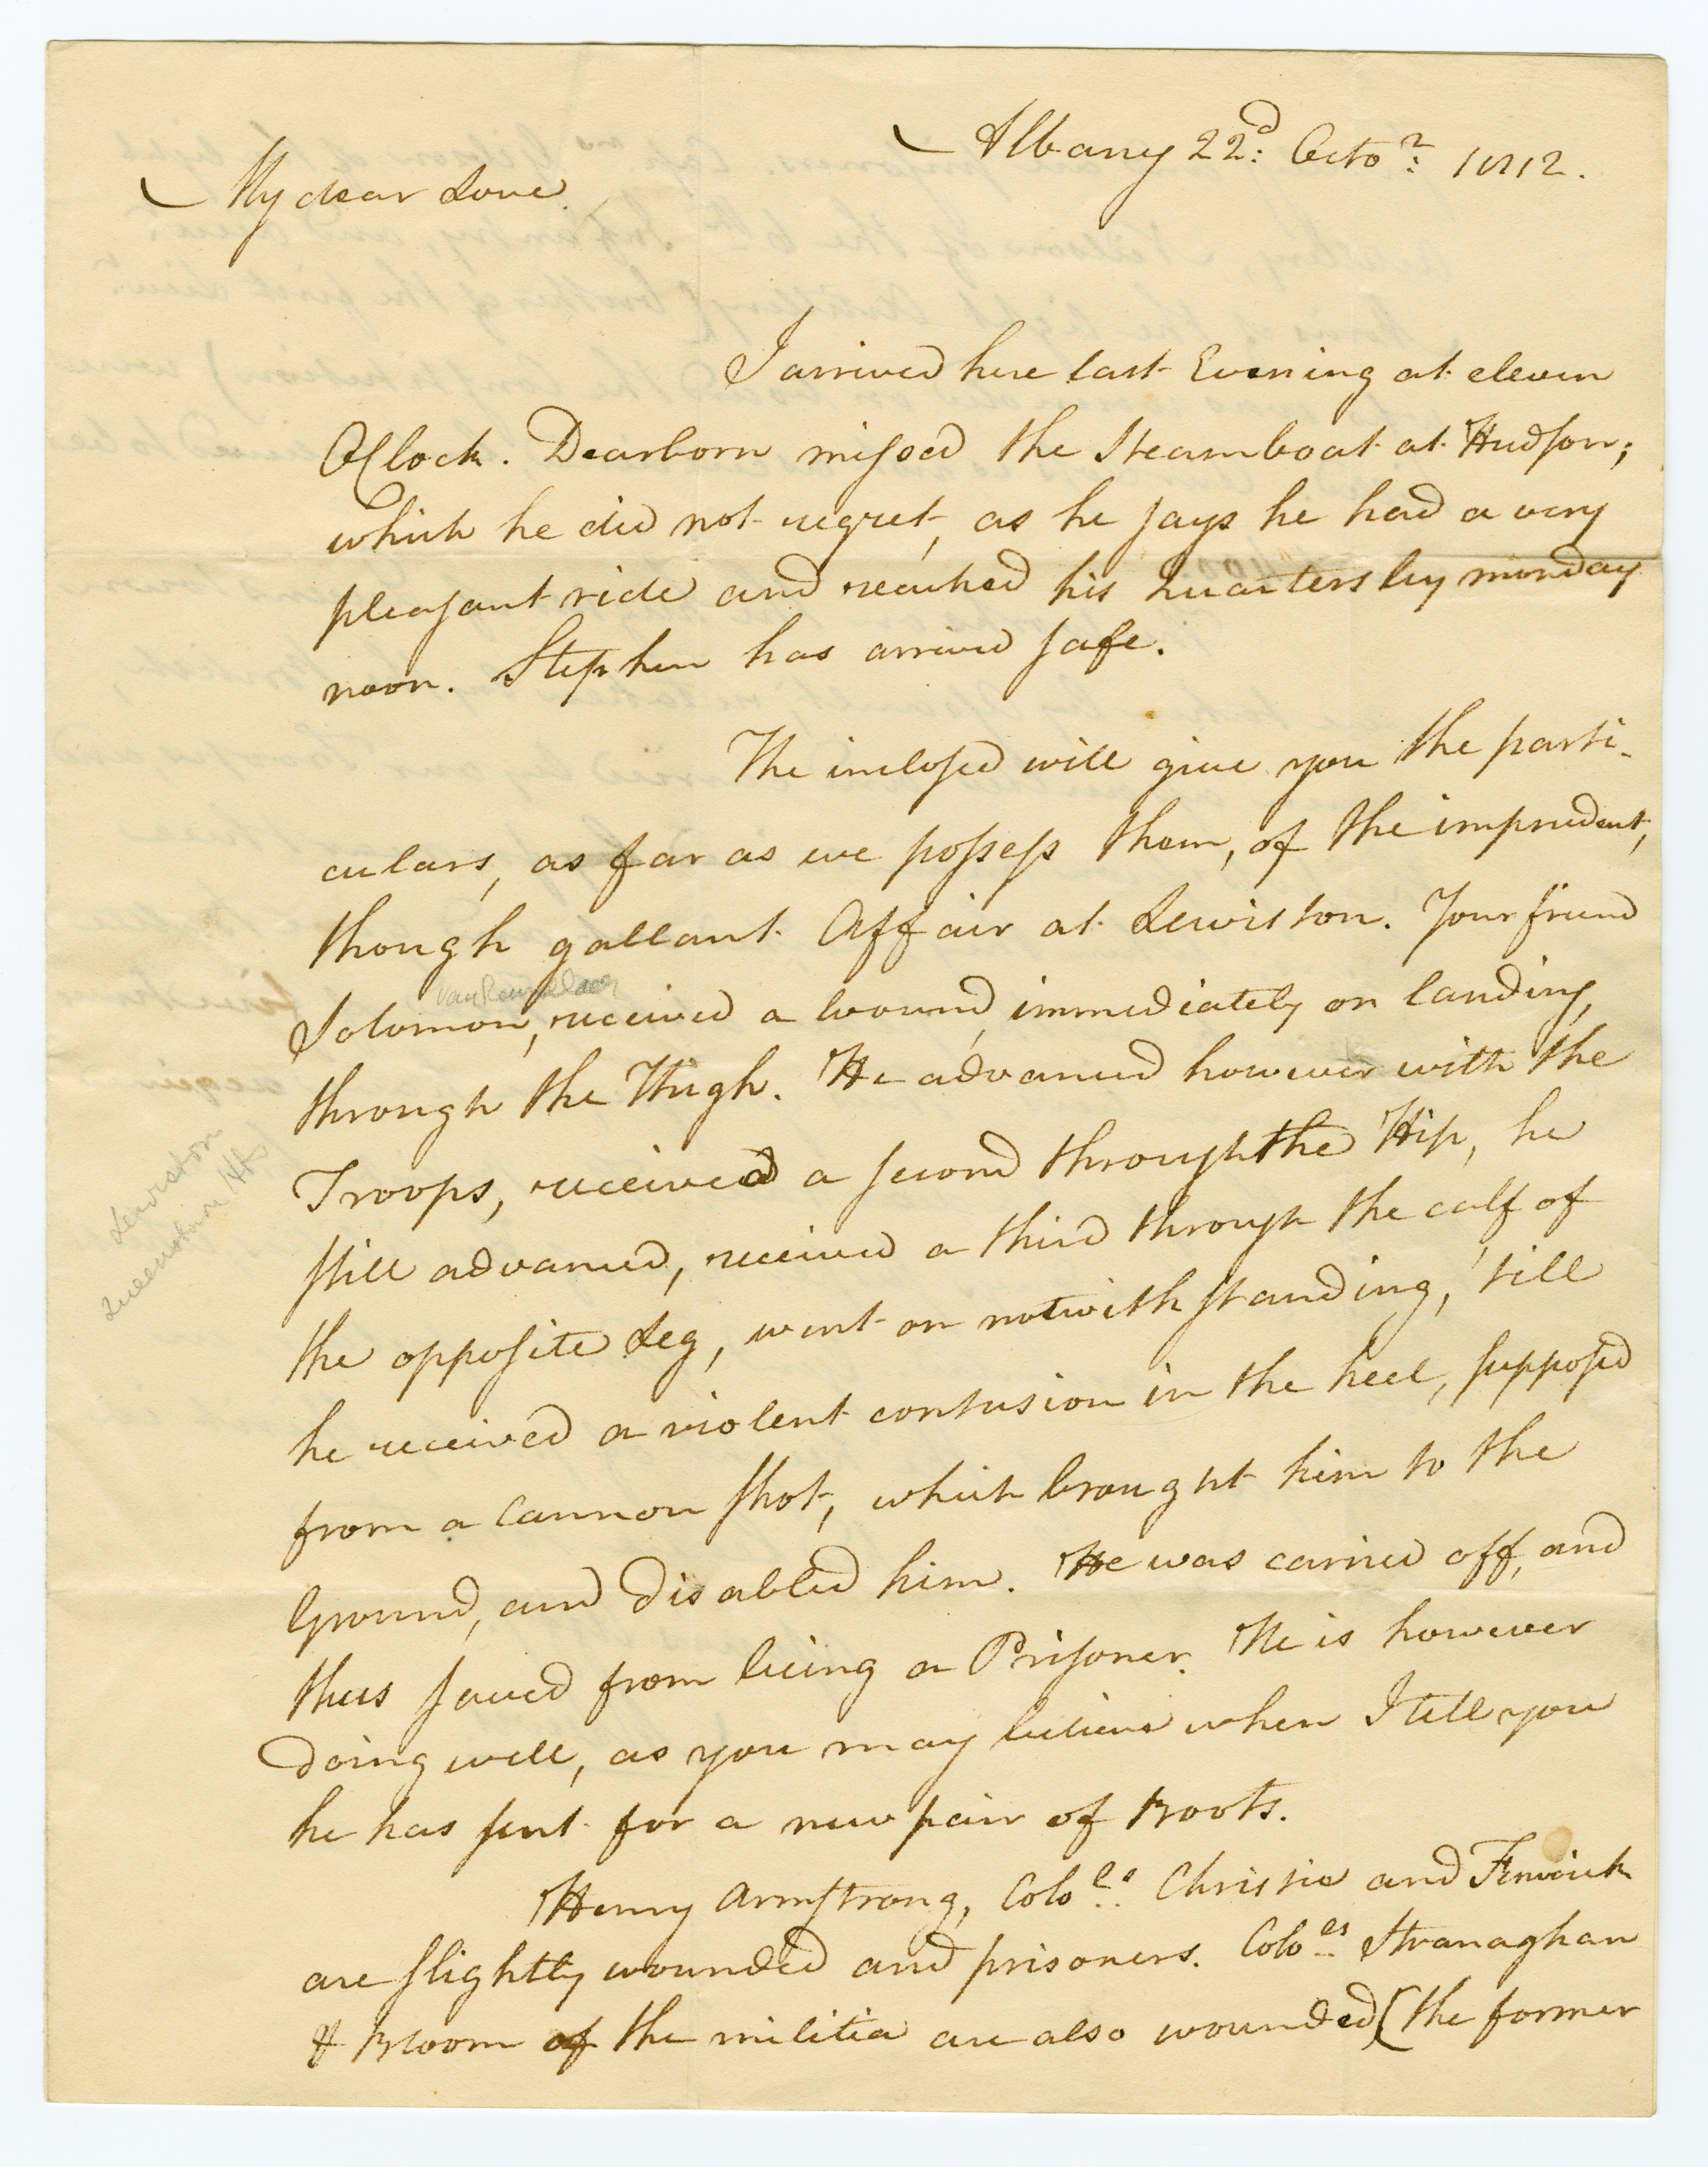 Albany 22d: Octor: 1812.
My dear Love.
I arrived here last Evening at eleven
OClock. Dearborn missed the Steamboat at Hudson;
which he did not regret, as he says he had a very
pleasant ride and reached his Quarters by monday
noon. Stephen has arrived safe.
The inclosed will give you the parti-
culars, as far as we possess them, of the imprudent,
though gallant Affair at Lewiston. Your friend
Van Rensselaer
Solomon, received a wound, immediately on landing,
through the Thigh. He advanced however with the
Troops, received a second through the Hip, he
still advanced, received a third through the calf of
the opposite Leg, went on notwithstanding, 'till
he received a violent contusion in the heel, supposed
from a Cannon shot, which brought him to the
Ground, and disabled him. He was carried off, and
thus saved from being a Prisoner. He is however
doing well, as you may believe when I tell you
he has sent for a new pair of Boots.
Henry Armstrong, Colols: Christie and Fenwick
are slightly wounded and prisoners. Colols: Stranaghan
& Bloom of the militia are also wounded (the former
Lewiston
Queenstown Hts